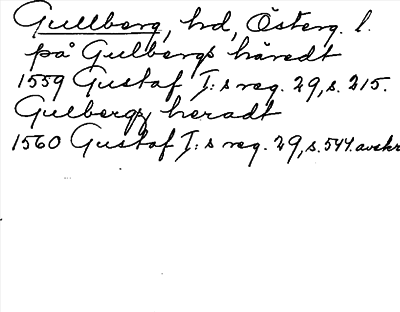 Gullberg, hd, Österg. l.
på Gulbergs häredt
1559 Gustaf I:s reg. 29, s. 215.
Gulbergz heradt
1560 Gustaf I:s reg. 29, s. 544. avskr